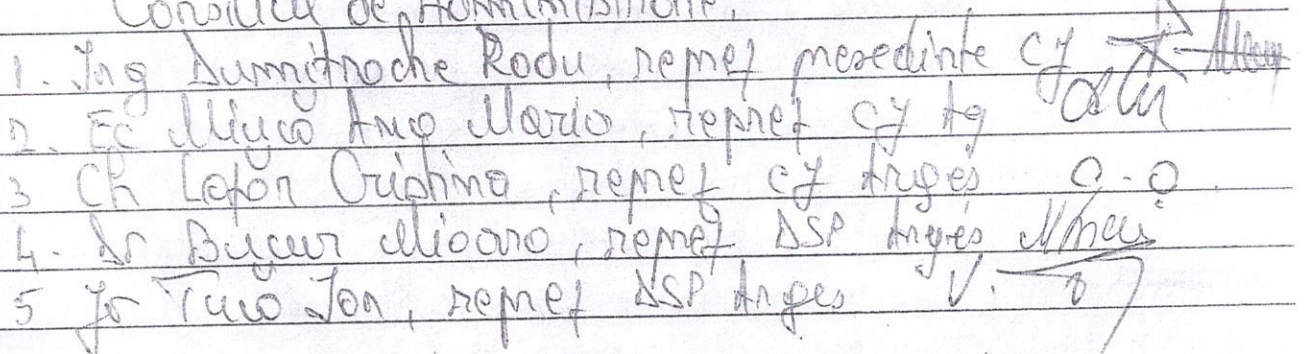 Consiliul de Administratie.
1. Ing Dumitrache Radu, reprez presedinte CJ
2. Ec Ana Maria, reprez CJ Ag
3 Ch Cristina, reprez CJ Arges
4. Dr Bugur Mioara, reprez DSP Arges
5 Jr Tuca Ion, reprez DSP Arges